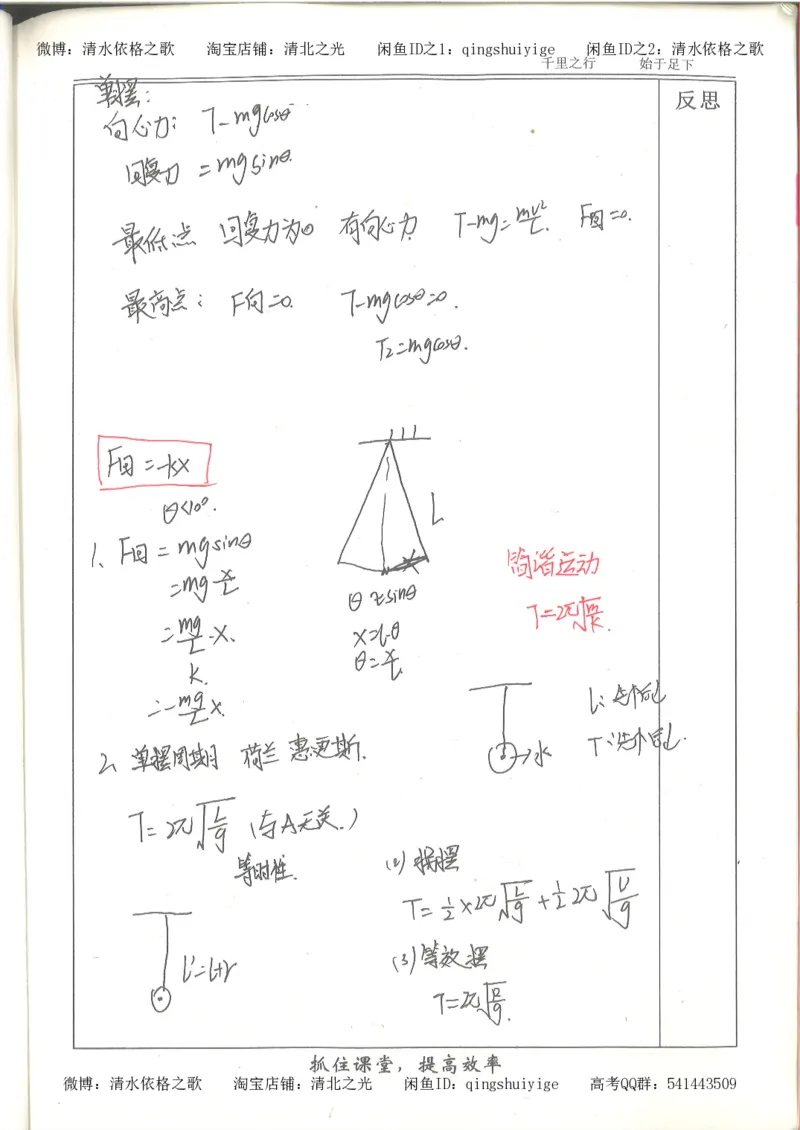 微博：清水依格之歌 淘宝店铺：清北之光 闲鱼ID之1：qingshuiyige 闲鱼ID之2：清水依格之歌
千里之行 始于足下
反思
单摆：
向心力： T-mgcosθ
回复力 =mgsinθ.
最低点 回复力为0 有向心力 T-mg=mv²/L. F回=0.
最高点： F向=0. T-mgcosθ=0.
T₂=mgcosθ.
F回=-kx
θ<10°.
1、F回=mgsinθ
=mg x/L
=mg/L·x.
k.
∴-mg/L x.
L
x
θ≈sinθ
x=L·θ
θ=x/L
简谐运动
T=2π√(m/k).
→水
L：先
T：先
2、单摆周期 荷兰 惠更斯.
T=2π√(L/g) (与A无关.)
等时性.
L'=L+r
(2)拐摆
T=½×2π√(L/g)+½2π√(L'/g)
(3)等效摆
T=2π√
抓住课堂，提高效率
微博：清水依格之歌 淘宝店铺：清北之光 闲鱼ID：qingshuiyige 高考QQ群：541443509